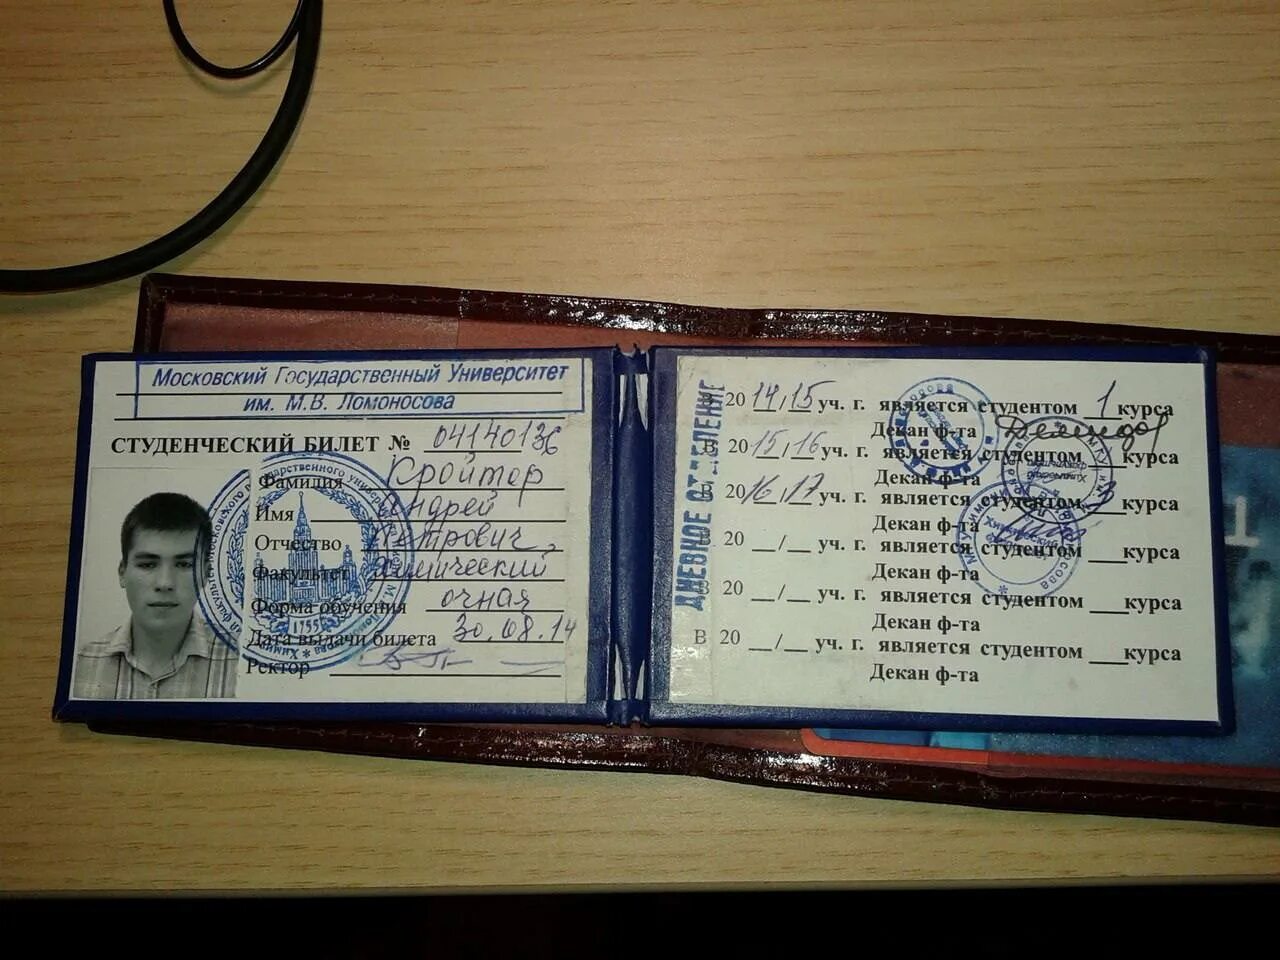 Московский Государственный Университет
им. М.В. Ломоносова
СТУДЕНЧЕСКИЙ БИЛЕТ № 04140136
Фамилия Кройтор
Имя Андрей
Отчество Петрович
Факультет Химический
Форма обучения очная
Дата выдачи билета 30.08.14
Ректор
1755
ДНЕВНОЕ ОТДЕЛЕНИЕ
В 2014/15 уч. г. является студентом 1 курса
Декан ф-та
В 2015/16 уч. г. является студентом курса
Декан ф-та
В 2016/17 уч. г. является студентом 3 курса
Декан ф-та
В 20 __/__ уч. г. является студентом ___курса
Декан ф-та
В 20 __/__ уч. г. является студентом ___курса
Декан ф-та
В 20 __/__ уч. г. является студентом ___курса
Декан ф-та
1